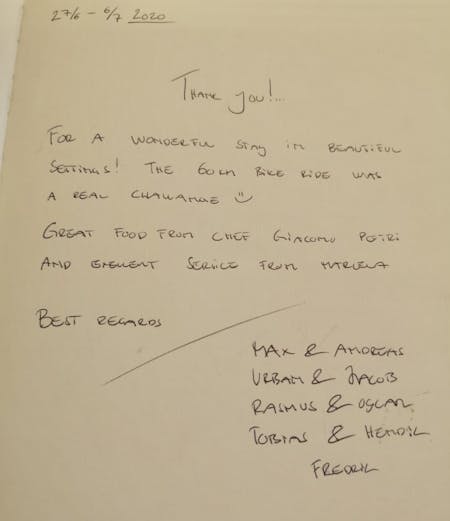 27/6 - 6/7 2020
Thank you!...
FOR A WONDERFUL STAY IN BEAUTIFUL
SETTINGS! THE 60 KM BIKE RIDE WAS
A REAL CHALLANGE ☺
GREAT FOOD FROM CHEF GIACOMO PETRI
AND EXELLENT SERVICE FROM
BEST REGARDS
MAX & ANDREAS
URBAN & JACOB
RASMUS & OSCAR
TOBIAS & HENRIK
FREDRIK